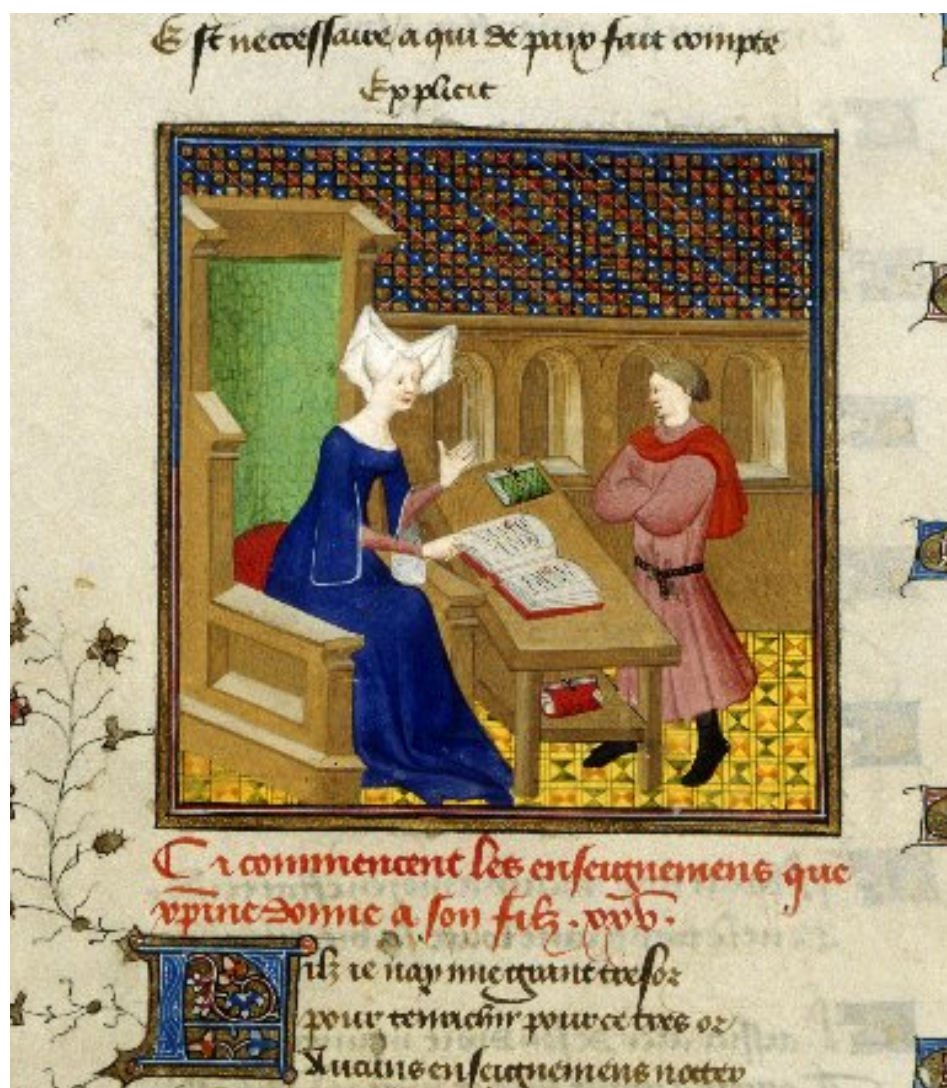 Est neccessaire a qui de paix fait compte
Explicit
Ci commencent les enseignemens que
xpine donne a son filz . xxv.
Filz ie nay mie grant tresor
pour tenrichir pour ce tres or
Aucuns enseignemens notter